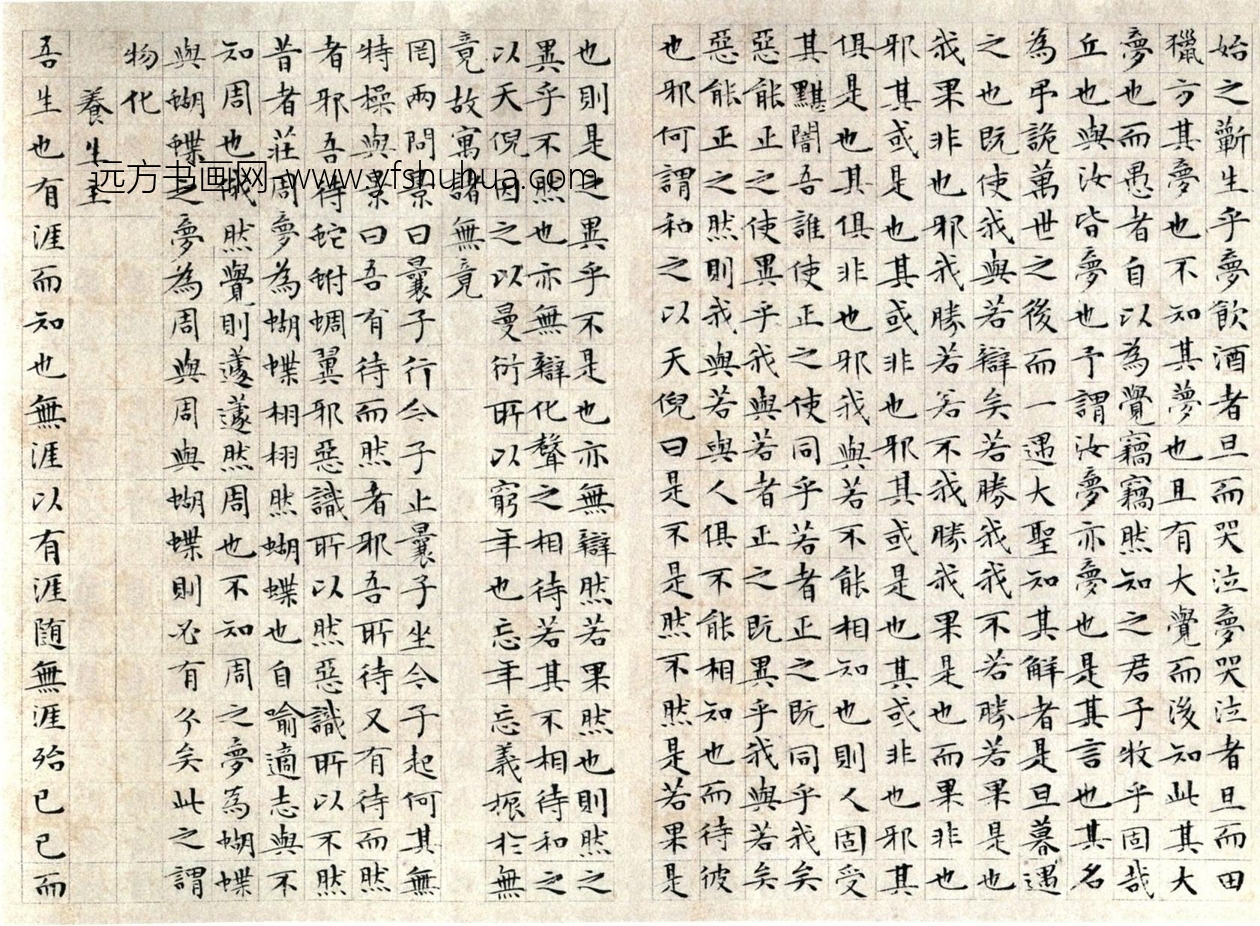 始之蘄生乎夢飲酒者旦而哭泣夢哭泣者旦而田
獵方其夢也不知其夢也且有大覺而後知此其大
夢也而愚者自以為覺竊竊然知之君子牧乎固哉
丘也與汝皆夢也予謂汝夢亦夢也是其言也其名
為弔詭萬世之後而一遇大聖知其解者是旦暮遇
之也既使我與若辯矣若勝我我不若勝若果是也
我果非也邪我勝若若不我勝我果是也而果非也
邪其或是也其或非也邪其或是也其或非也邪其
俱是也其俱非也邪我與若不能相知也則人固受
其黮闇吾誰使正之使同乎若者正之既同乎我矣
惡能正之使異乎我與若者正之既異乎我與若矣
惡能正之然則我與若與人俱不能相知也而待彼
也邪何謂和之以天倪曰是不是然不然是若果是
也則是之異乎不是也亦無辯然若果然也則然之
異乎不然也亦無辯化聲之相待若其不相待和之
以天倪因之以曼衍所以窮年也忘年忘義振於無
竟故寓諸無竟
罔兩問景曰曩子行今子止曩子坐今子起何其無
特操與景曰吾有待而然者邪吾所待又有待而然
者邪吾待蛇蚹蜩翼邪惡識所以然惡識所以不然
昔者莊周夢為蝴蝶栩栩然蝴蝶也自喻適志與不
知周也俄然覺則蘧蘧然周也不知周之夢為蝴蝶
與蝴蝶之夢為周與周與蝴蝶則必有分矣此之謂
物化
養生主
吾生也有涯而知也無涯以有涯隨無涯殆已已而
远方书画网-www.yfshuhua.com